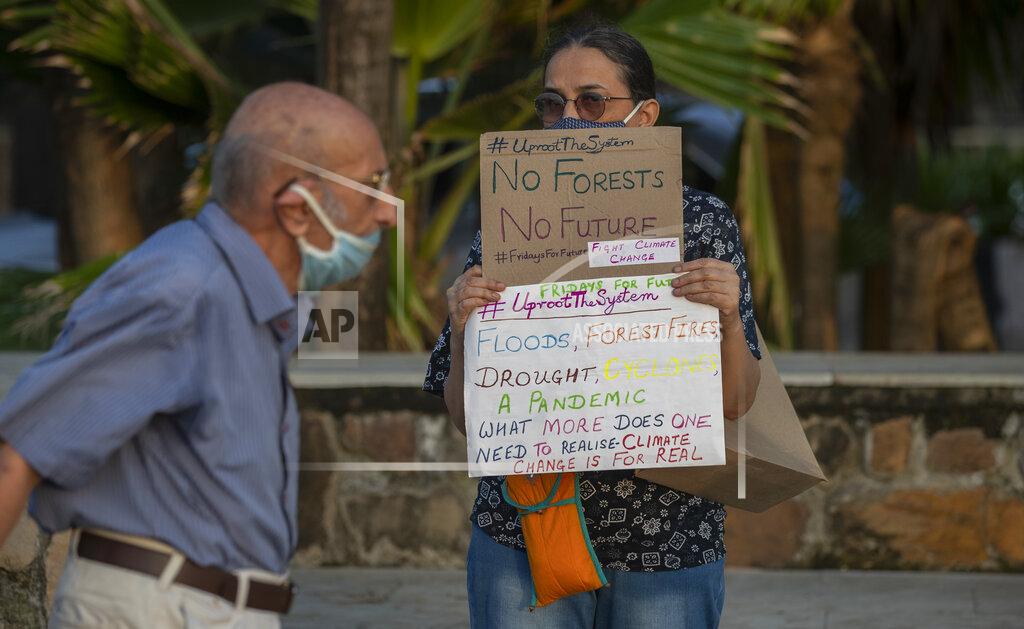 #UprootTheSystem
No Forests
No Future
#FridaysForFuture
Fight Climate
Change
Fridays For Fut
#UprootTheSystem
Floods, Forest Fires,
Drought, Cyclones,
A Pandemic
What more does one
need to realise-Climate
change is for real
AP